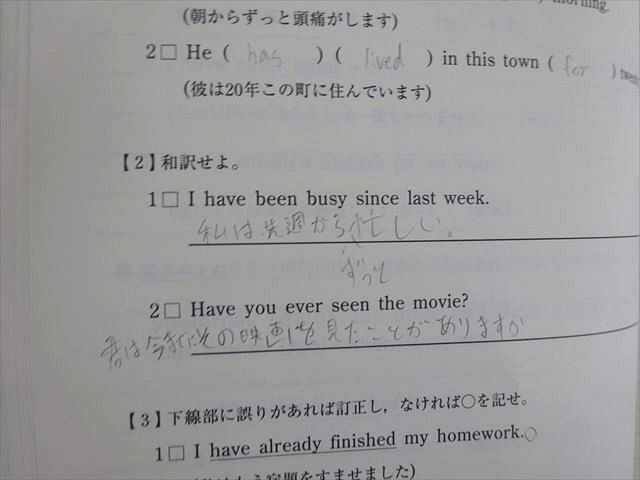 morning.
(朝からずっと頭痛がします)
2□ He ( has ) ( lived ) in this town ( for )
(彼は20年この町に住んでいます)
【2】和訳せよ。
1□ I have been busy since last week.
私は先週から忙しい。
ずっと
2□ Have you ever seen the movie?
君は今までにその映画を見たことがありますか
【3】下線部に誤りがあれば訂正し,なければ○を記せ。
1□ I have already finished my homework.○
宿題をすませました)